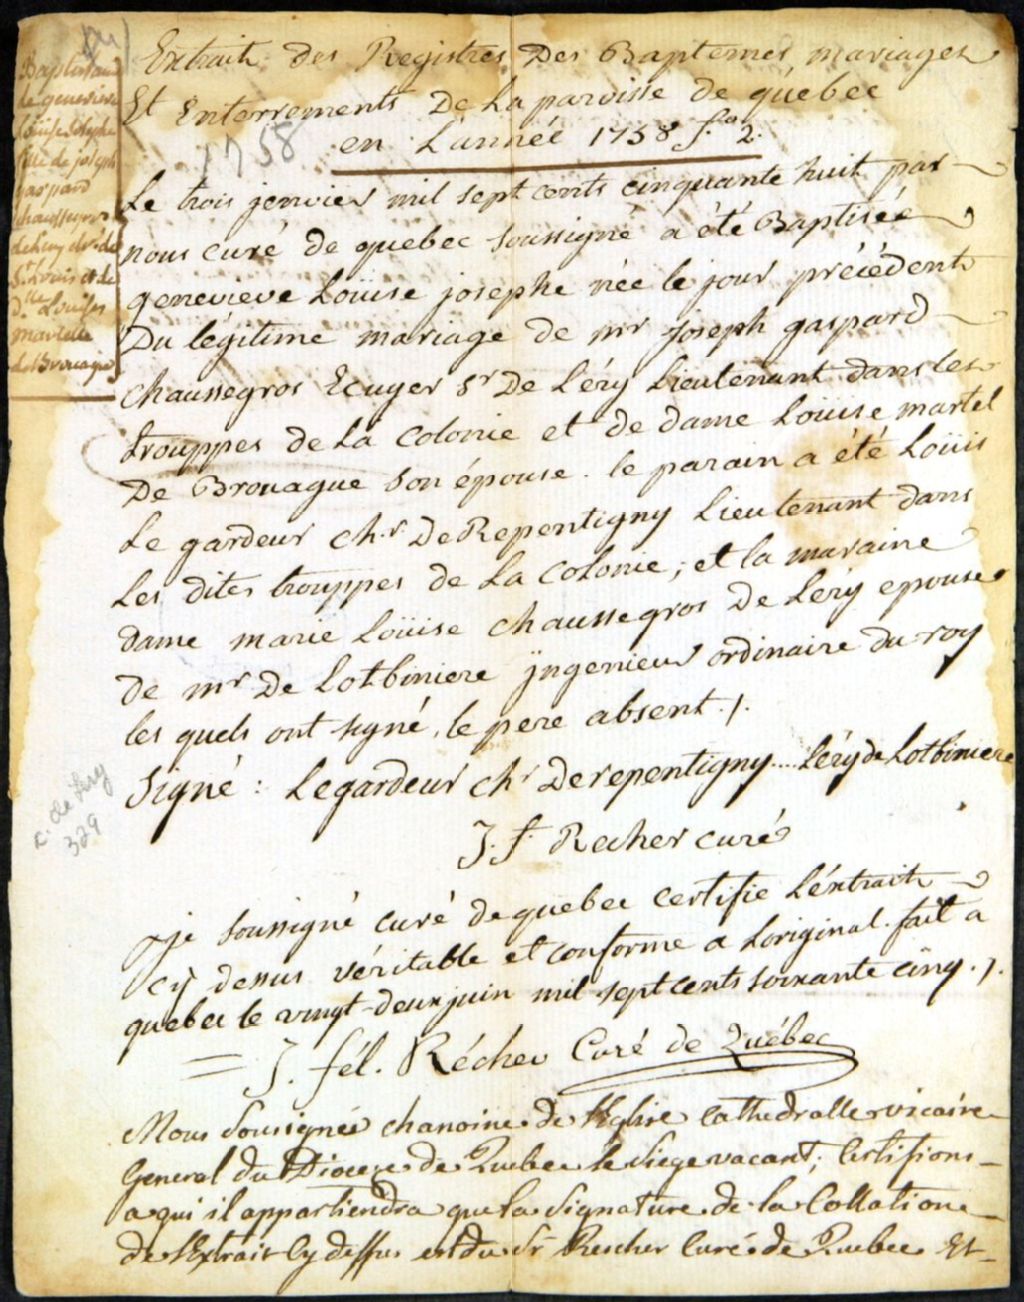 Extrait des Registres Des Baptemes, mariages
Et Enterrements De La paroisse de quebec
en L'année 1758 f.° 2.
1758
Baptistaire
de genevieve
Loüise Josephe
fille de joseph
gaspard
chaussegros
de Lery
St Louis et de
d.lle Louise
martelle
de Brouague
Le trois jenvier mil sept cents cinquante huit par
nous curé de quebec soussigné a été Baptisée
genevieve Loüise josephe née le jour précédent
Du légitime mariage de mr joseph gaspard
chaussegros Ecuyer Sr De Léry Lieutenant dans les
trouppes de La Colonie et de dame Loüise martel
De Brouague son épouse. le parain a été Loüis
Le gardeur ch.r De Repentigny Lieutenant dans
Les dites trouppes de La Colonie; et la maraine
Dame marie Loüise chaussegros De Léry epouse
de mr De Lotbiniere jngenieur ordinaire du roy
les quels ont signé, le pere absent ./.
Signé : Legardeur ch.r Derepentigny .... Léry de Lotbiniere
J. f. Recher curé
C. de Lery
329
je soussigné curé de quebec certifie L'extrait
cy dessus véritable et conforme a L'original. fait a
quebec le vingt-deux juin mil sept cents soixante cinq ./.
J. fél. Récher Curé de Québec
Nous Soussignée chanoine de l'Eglise cathedralle vicaire
General du Diocese de Quebec le Siege vacant; Certifions
a qui il appartiendra que la Signature de la Collation
de l'Extrait Cy dessus est du Sr Rescher Curé de Quebec Et